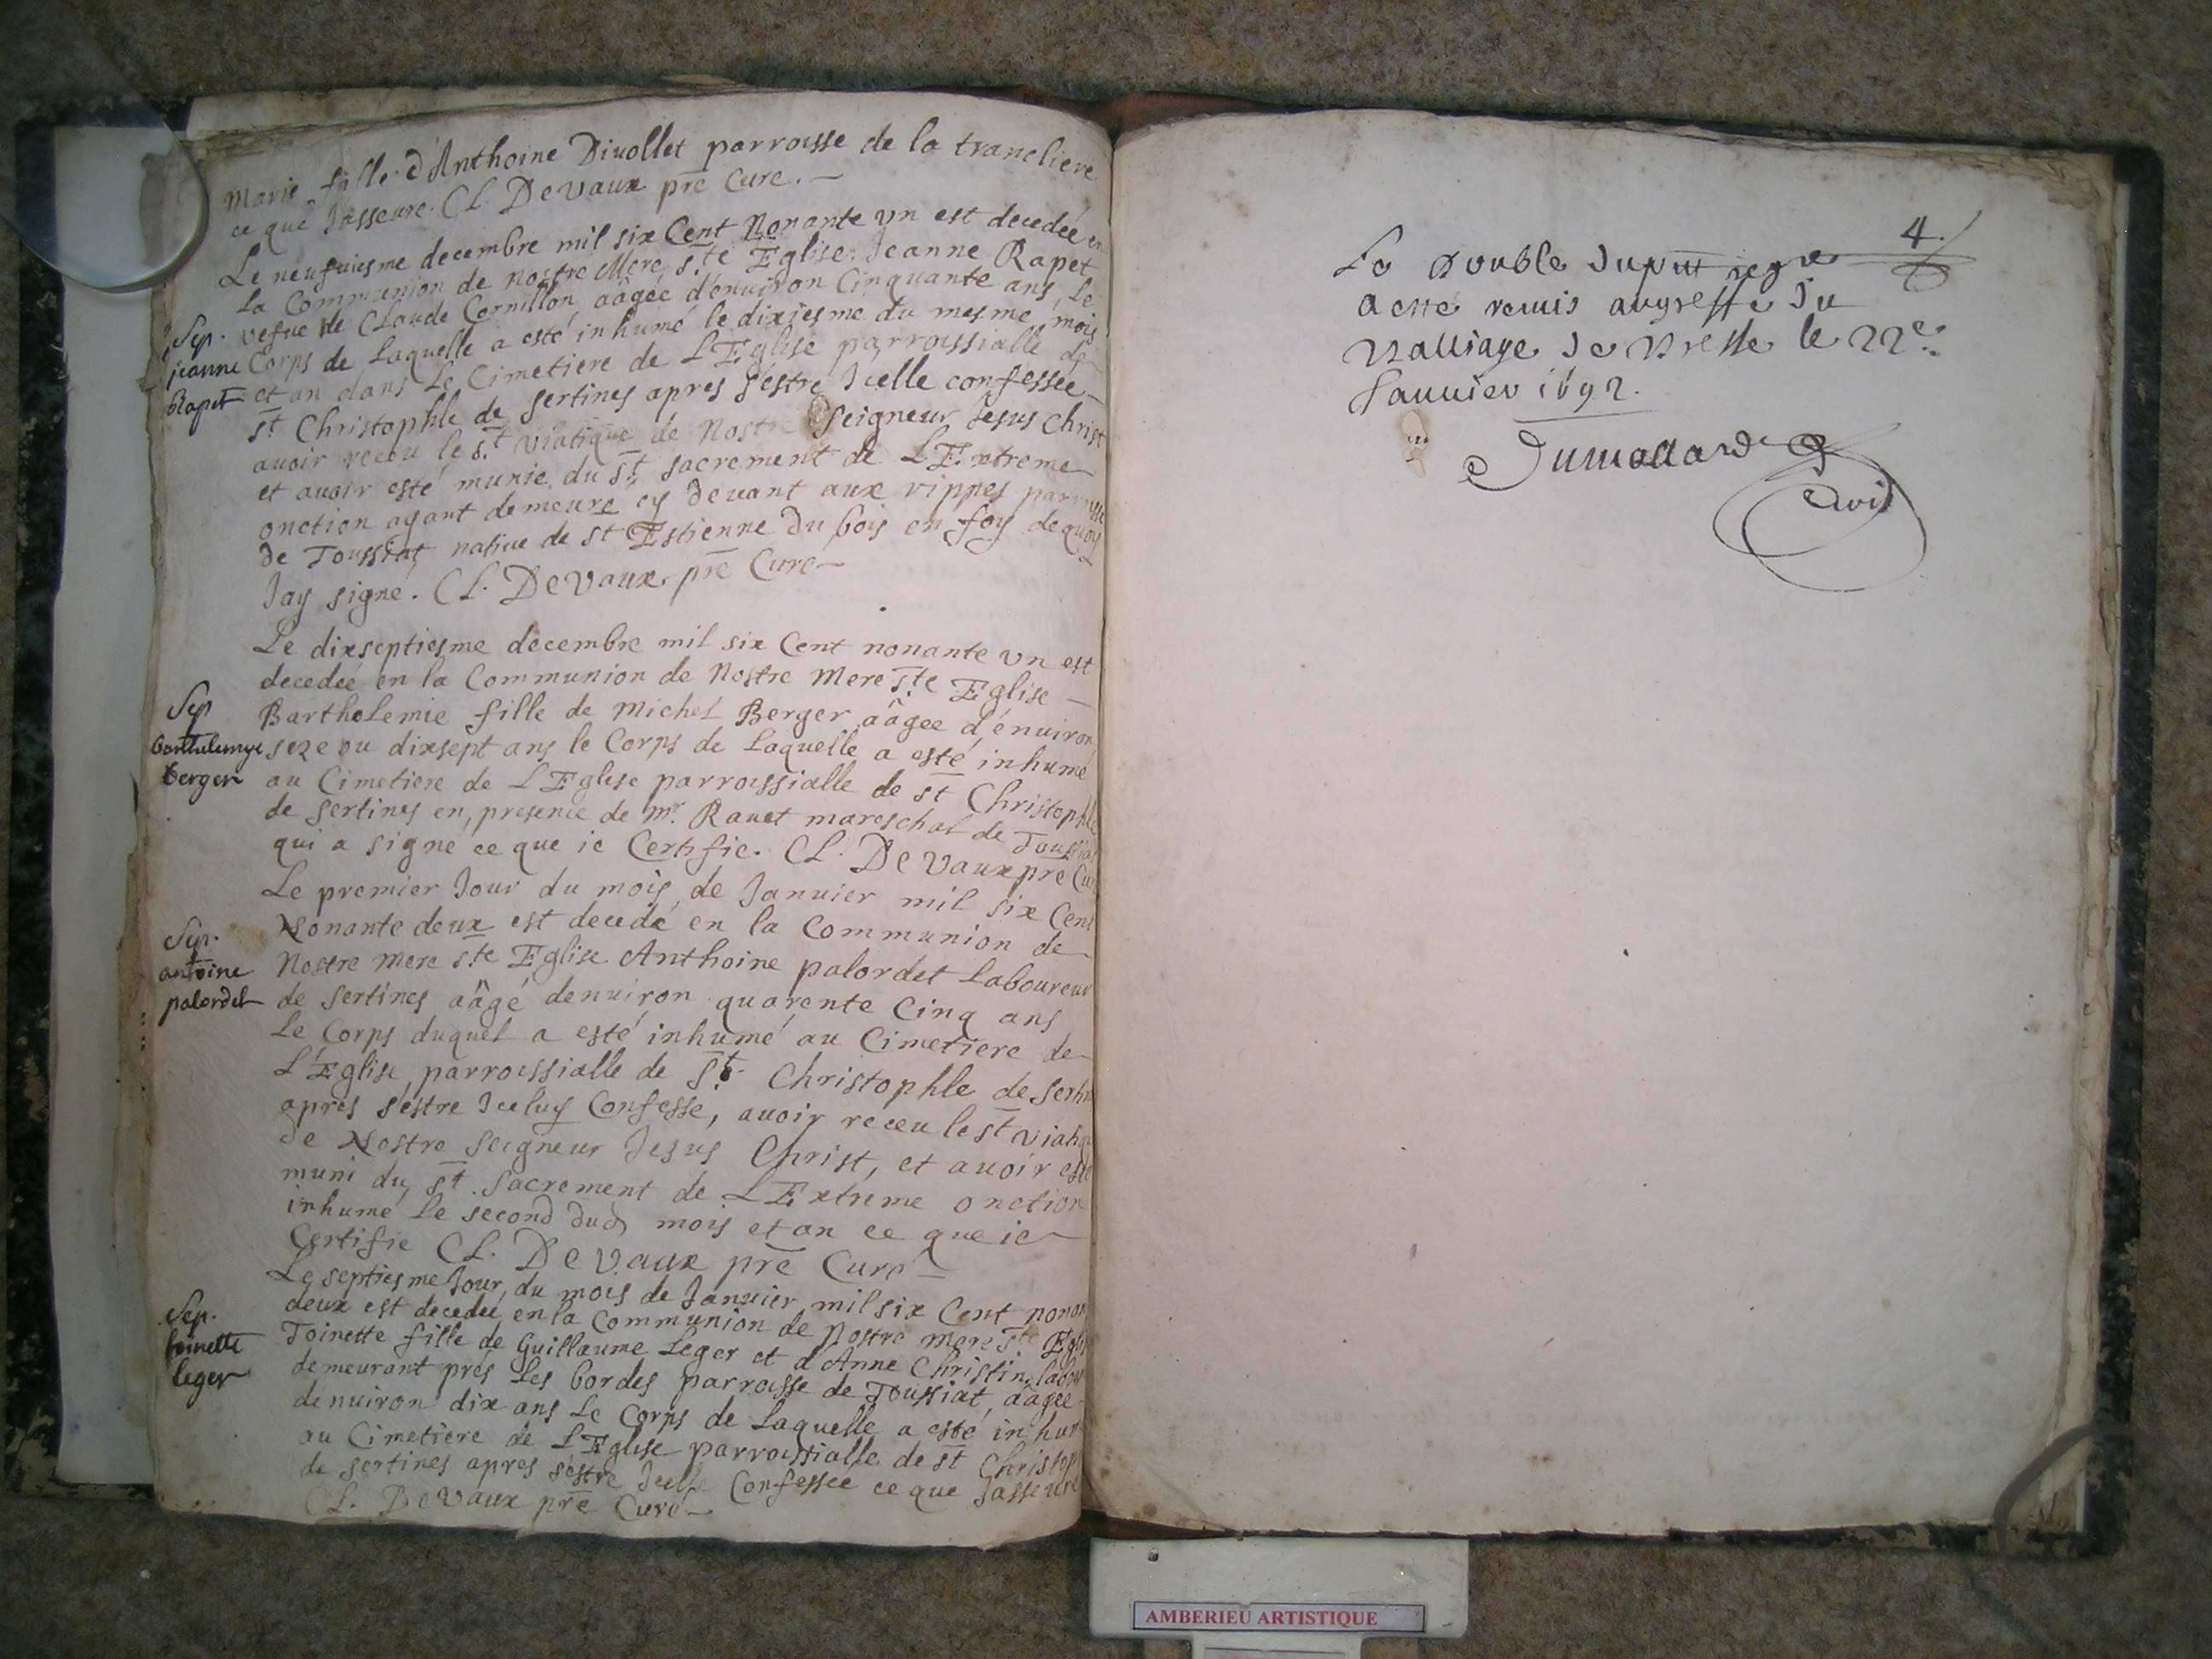 Marie fille d'Anthoine Diuollet parroisse de la trancliere
ce que Jasseure. Cl. DeVaux pre Cure.
Le neufuiesme decembre mil six Cent Nonante vn est decedée en
la Communion de nostre Mere s.te Eglise Jeanne Rapet
vefue de Claude Cornillon aâgée d'enuiron Cinquante ans, le
Corps de Laquelle a esté inhumé le dixiesme du mesme mois
et an dans Le Cimetiere de L'Eglise parroissialle de
st Christophle de sertines apres s'estre Jcelle confessée
auoir receu le s.t viatique de Nostre Seigneur Jesus Christ
et auoir esté munie du st sacrement de L'Extreme
onction ayant demeuré cy deuant aux rippes parroisse
de Toussiat natiue de st Estienne du bois en foy dequoy
Jay signé. Cl. DeVaux pre Curé
Sep.
jeanne
Rapet
Le dixseptiesme decembre mil six Cent nonante vn est
decedée en la Communion de Nostre Mere s.te Eglise
Bartholemie fille de Michel Berger aâgée d'enuiron
seze ou dixsept ans le Corps de Laquelle a esté inhumé
au Cimetiere de L'Eglise parroissialle de st Christophle
de sertines en presence de mr. Rauet mareschal de Toussiat
qui a signe ce que ie Certifie. Cl. DeVaux pre Cur
Sep
bertulemye
berger
Le premier Jour du mois de Januier mil six Cent
Nonante deux est decedé en la Communion de
Nostre mere s.te Eglise Anthoine palordet Laboureur
de Sertines aâgé denuiron quarente Cinq ans
Le Corps duquel a esté inhumé au Cimetiere de
L'Eglise parroissialle de St. Christophle de Sertin
apres s'estre Jceluy Confessé, auoir receu le st viatiq
de Nostre Seigneur Jesus Christ, et auoir esté
muni du st. Sacrement de L'Extreme onction
inhumé Le second dud mois et an ce que ie
Certifie Cl. DeVaux pre Curé
Sep.
antoine
palordet
Le septiesme Jour du mois de Januier mil six Cent nonan
deux est decedée en la Communion de Nostre mere ste Egl
Toinette fille de Guillaume Leger et d'Anne Christin labou
demeurant pres Les bordes parroisse de Toussiat, aâgée
denuiron dix ans Le Corps de Laquelle a esté inhum
au Cimetiere de L'Eglise parroissialle de st Christoph
de sertines apres s'estre Jcelle Confessée ce que Jasseure
Cl. DeVaux pre Curé
Sep.
toinette
leger
4.
Le double du pnt regre
a esté remis au greffe du
Balliage de Bresse le 22e
Januier 1692.
Dumollard
AMBERIEU ARTISTIQUE